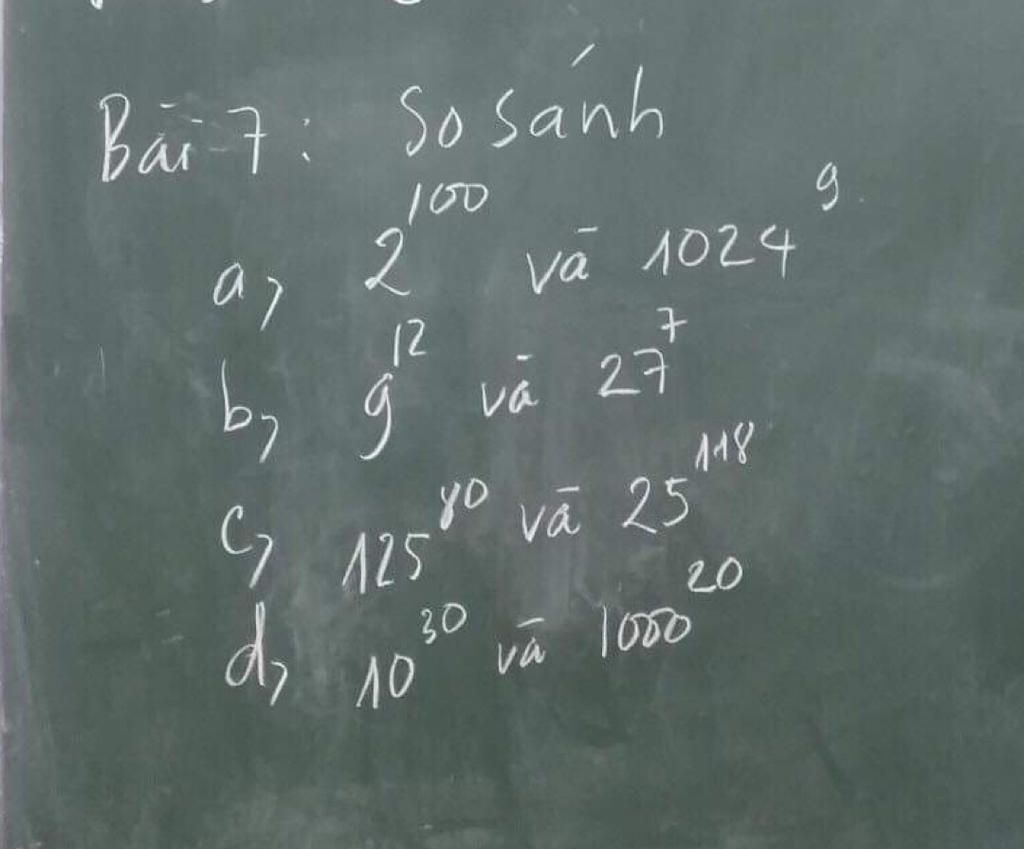 Bài 7: So sánh
a, 2^100 và 1024^9
b, 9^12 và 27^7
c, 125^80 và 25^118
d, 10^30 và 1000^20